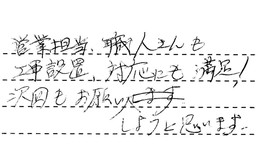 営業担当、職人さんも
工事設置、対応にも満足!
次回もお願い
しようと思います。